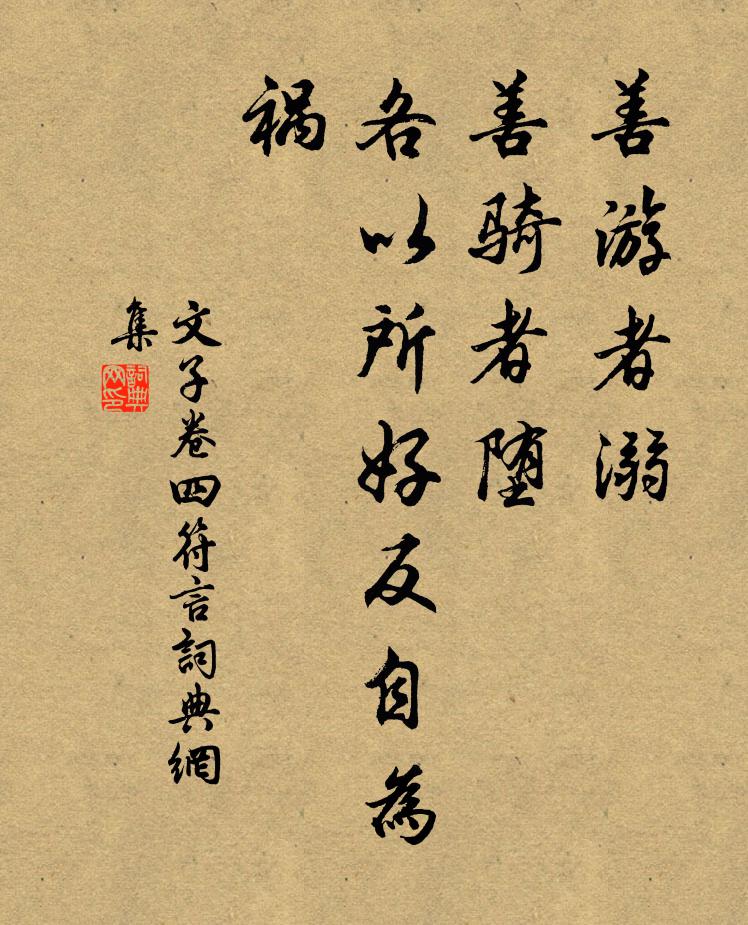 善游者溺
善骑者堕
各以所好反自為
祸
文子卷四符言詞典網
集
詞典
网印